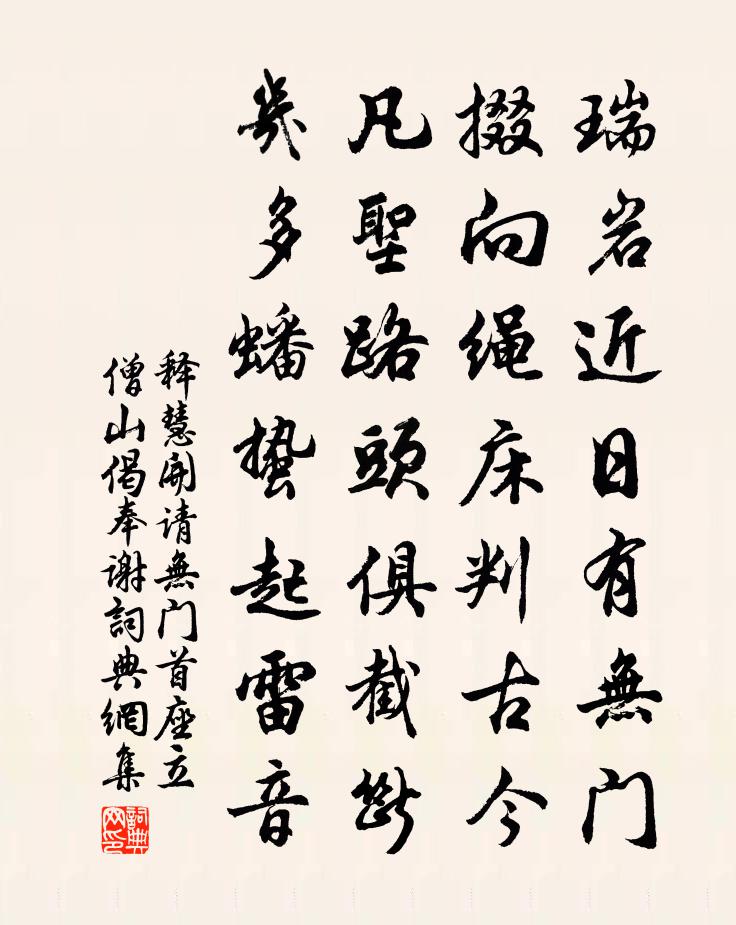 瑞岩近日有無门
掇向绳床判古今
凡聖路頭俱截斷
幾多蟠蟄起雷音
释慧開请無门首座立
僧山偈奉谢詞典網集
詞典
网印